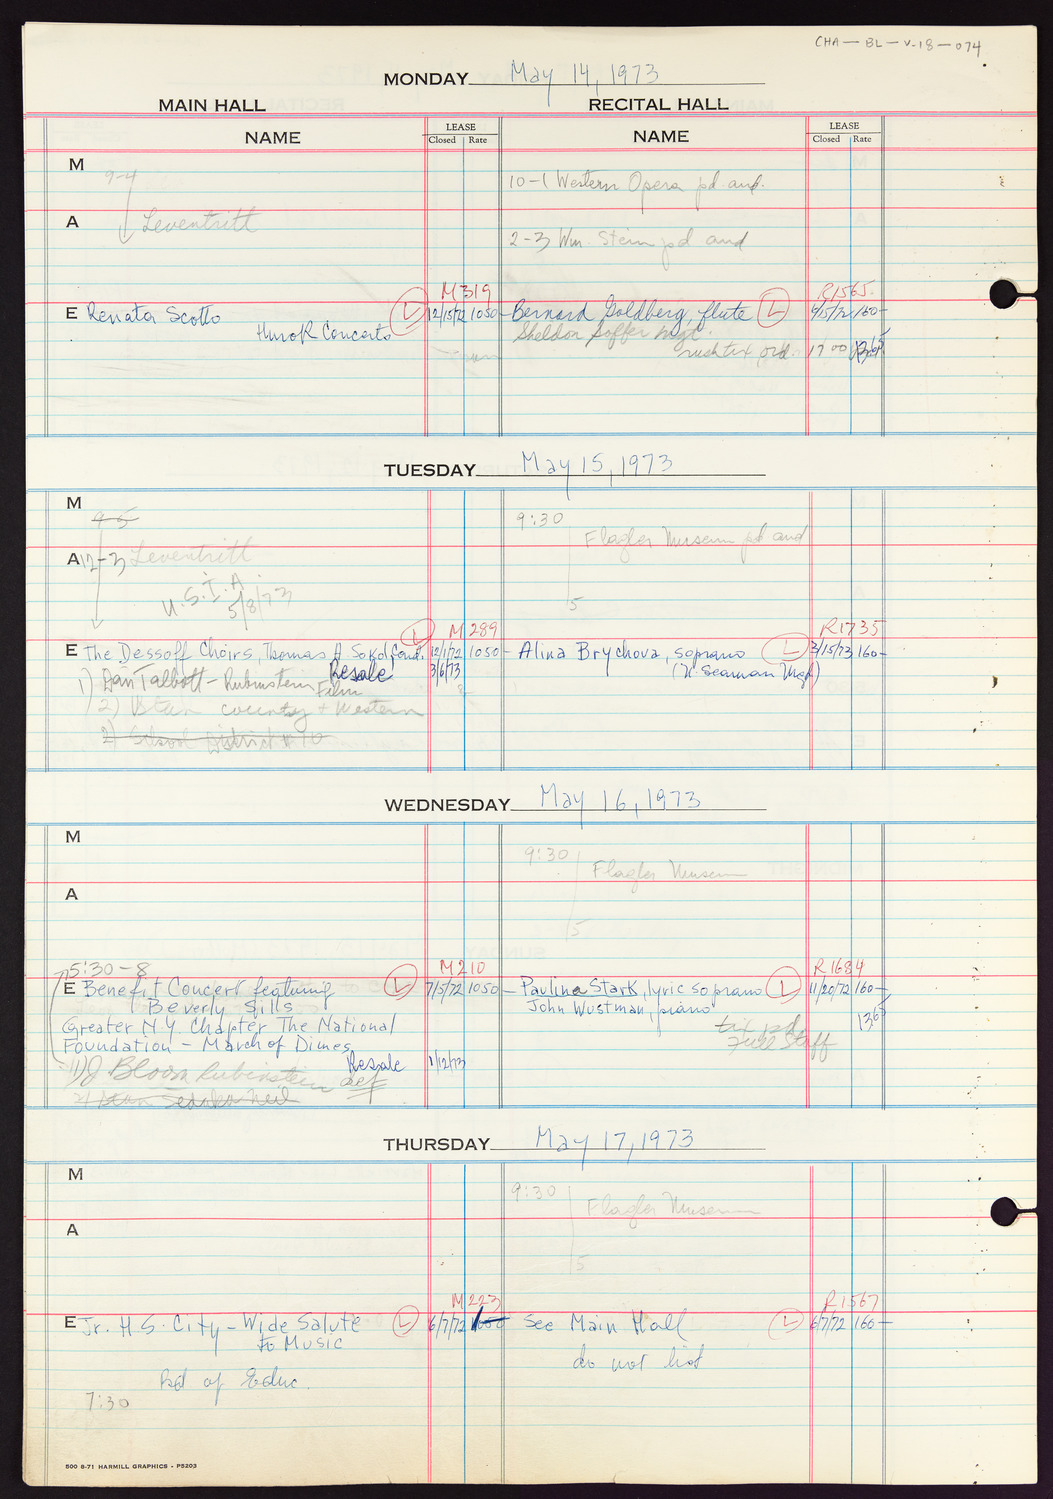 CHA-BL-V-18-074
MONDAY May 14, 1973
MAIN HALL RECITAL HALL
NAME LEASE Closed Rate NAME LEASE Closed Rate
M 9-4
10-1 Western Opera pd and.
A Leventritt
2-3 Wm. Stein pd and
M319 R1565
E Renata Scotto L 12/15/72 1050- Bernard Goldberg, flute L 9/5/72 160-
Hurok Concerts Sheldon Soffer Mgt
pd. 17 00
TUESDAY May 15, 1973
M
9-5 9:30
Flagler Museum pd and
A 12-3 Leventritt
U.S.I.A
5/8/73
5
M 289 R1735
E The Dessoff Choirs, Thomas A Sokol, cond. L 12/1/72 1050- Alina Brychova, soprano L 3/15/73 160-
Resale 3/6/73 (N. Seaman Mgt)
1) Dan Talbott - Rubinstein Film
2) Stan country + Western
2) School District # 10
WEDNESDAY May 16, 1973
M
9:30
Flagler Museum
A
5
5:30-8 M210 R1684
E Benefit Concert featuring L 7/5/72 1050- Paulina Stark, lyric soprano L 11/20/72 160-
Beverly Sills John Wustman, piano
Greater N Y Chapter The National tix pd
Foundation - March of Dimes Full Staff
Resale 1/12/73
1) J Bloom Rubinstein def
2) Stan Sedaka Neil
THURSDAY May 17, 1973
M
9:30
Flagler Museum
A
5
M223 R1567
E Jr. H S. City-Wide Salute L 6/7/72 See Main Hall L 6/7/72 160-
to Music
do not list
Bd of Educ.
7:30
500 8-71 HARMILL GRAPHICS - P5203